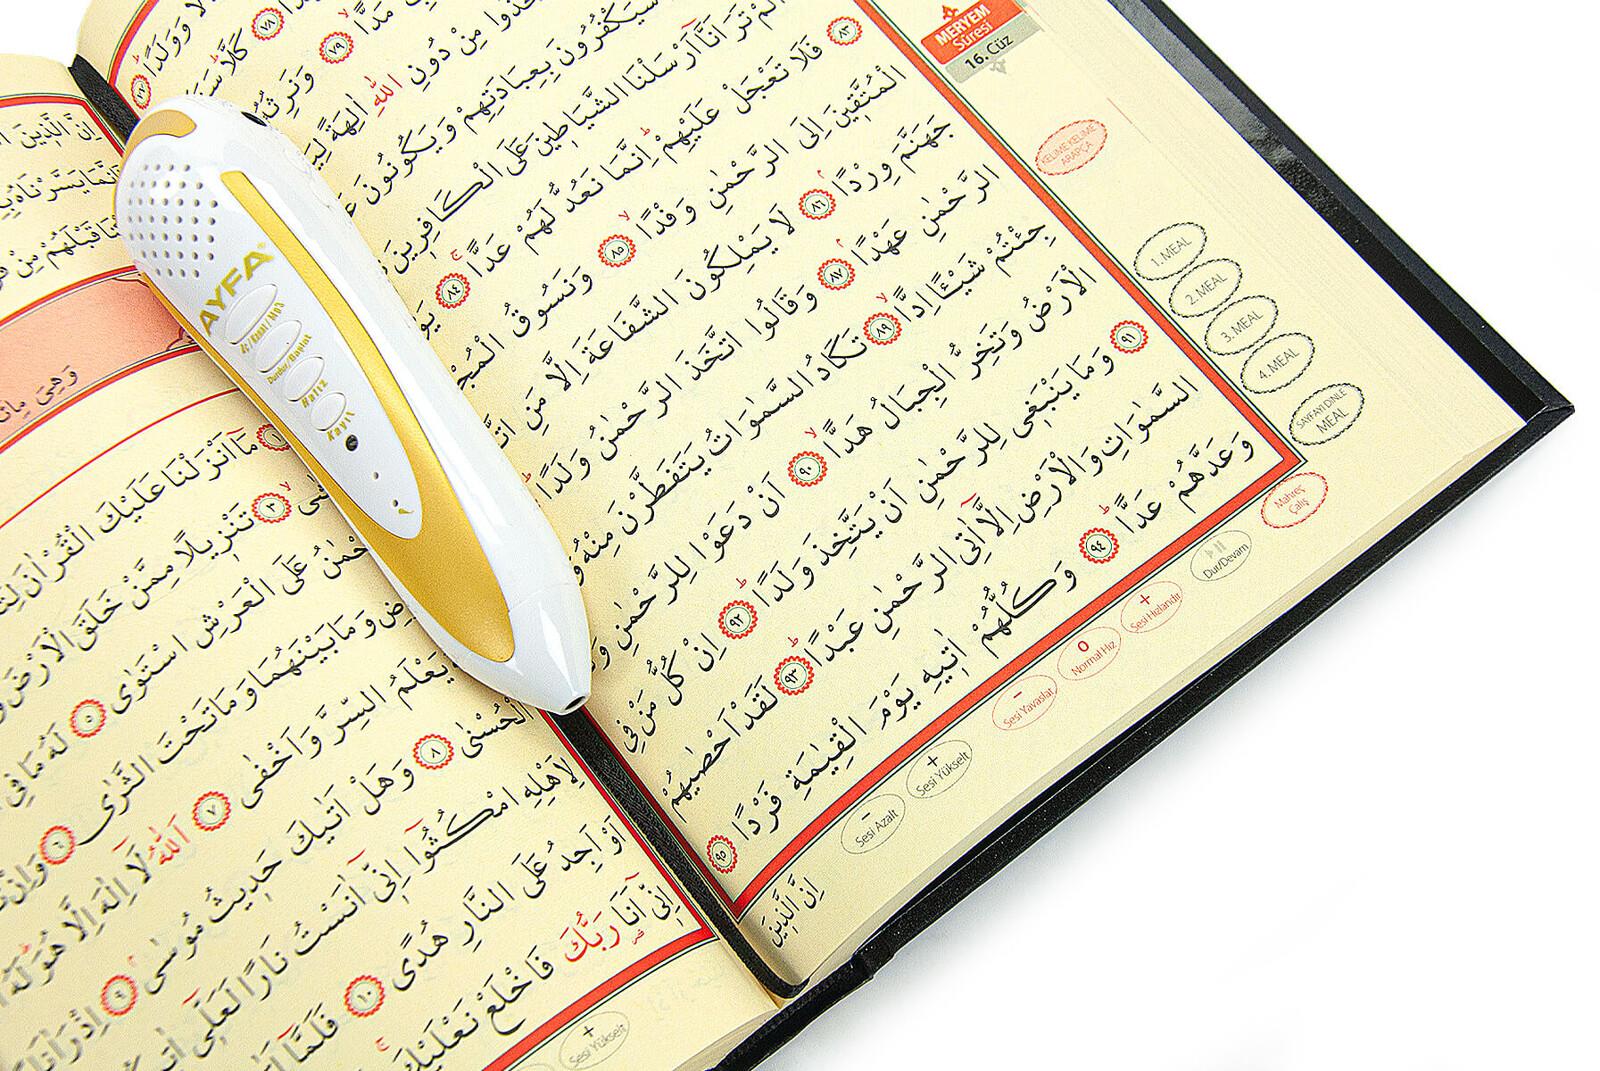 MERYEM
Sûresi
16. Cüz
وَوَلَدًا ٧٧
٧٨ كَلَّا
مَدًّا ٧٩ وَنَرِثُهُ
مِنْ دُونِ اللّٰهِ اٰلِهَةً
سَيَكْفُرُونَ بِعِبَادَتِهِمْ وَيَكُونُونَ
اَلَمْ تَرَ اَنَّٓا اَرْسَلْنَا الشَّيَاطِينَ عَلَى الْكَافِرِينَ
٨٣ فَلَا تَعْجَلْ عَلَيْهِمْ اِنَّمَا نَعُدُّ لَهُمْ عَدًّا ٨٤
الْمُتَّقِينَ اِلَى الرَّحْمٰنِ وَفْدًا ٨٥ وَنَسُوقُ
جَهَنَّمَ وِرْدًا ٨٦ لَا يَمْلِكُونَ الشَّفَاعَةَ اِلَّا مَنِ
الرَّحْمٰنِ عَهْدًا ٨٧ وَقَالُوا اتَّخَذَ الرَّحْمٰنُ وَلَدًا
جِئْتُمْ شَيْـًٔا اِدًّا ٨٩ تَكَادُ السَّمٰوَاتُ يَتَفَطَّرْنَ مِنْهُ
الْاَرْضُ وَتَخِرُّ الْجِبَالُ هَدًّا ٩٠ اَنْ دَعَوْا لِلرَّحْمٰنِ
٩١ وَمَا يَنْبَغِي لِلرَّحْمٰنِ اَنْ يَتَّخِذَ وَلَدًا ٩٢ اِنْ كُلُّ مَنْ فِي
السَّمٰوَاتِ وَالْاَرْضِ اِلَّٓا اٰتِي الرَّحْمٰنِ عَبْدًا ٩٣ لَقَدْ اَحْصٰيهُمْ
وَعَدَّهُمْ عَدًّا ٩٤ وَكُلُّهُمْ اٰتِيهِ يَوْمَ الْقِيٰمَةِ فَرْدًا ٩٥
اِنَّ الَّذِينَ
KELİME KELİME
ARAPÇA
1. MEAL
2. MEAL
3. MEAL
4. MEAL
SAYFAYI DİNLE
MEAL
Mahreç
Çalış
Dur/Devam
+
Sesi Hızlandır
0
Normal Hız
-
Sesi Yavaşlat
+
Sesi Yükselt
-
Sesi Azalt
AYFA®
Aç/Kapat/MOD
Durdur/Başlat
Hafız
Kayıt
اِنَّ الَّذِينَ
قَبْلَهُمْ مِنْ
وَهِيَ
١ مَٓا اَنْزَلْنَا عَلَيْكَ الْقُرْاٰنَ
٣ تَنْزِيلًا مِمَّنْ خَلَقَ الْاَرْضَ
عَلَى الْعَرْشِ اسْتَوٰى ٥ لَهُ مَا فِي
وَمَا بَيْنَهُمَا وَمَا تَحْتَ الثَّرٰى ٦ وَاِنْ
يَعْلَمُ السِّرَّ وَاَخْفٰى ٧ اَللّٰهُ لَٓا اِلٰهَ اِلَّا هُوَ لَهُ
الْحُسْنٰى ٨ وَهَلْ اَتٰيكَ حَدِيثُ مُوسٰى ٩ اِذْ رَاٰ نَارًا
لِاَهْلِهِ امْكُثُٓوا اِنِّٓي اٰنَسْتُ نَارًا لَعَلِّٓي
اَوْ اَجِدُ عَلَى النَّارِ هُدًى ١٠ فَلَمَّٓا
اِنِّٓي اَنَا رَبُّكَ فَاخْلَعْ نَعْلَيْكَ
+
Sesi Yükselt